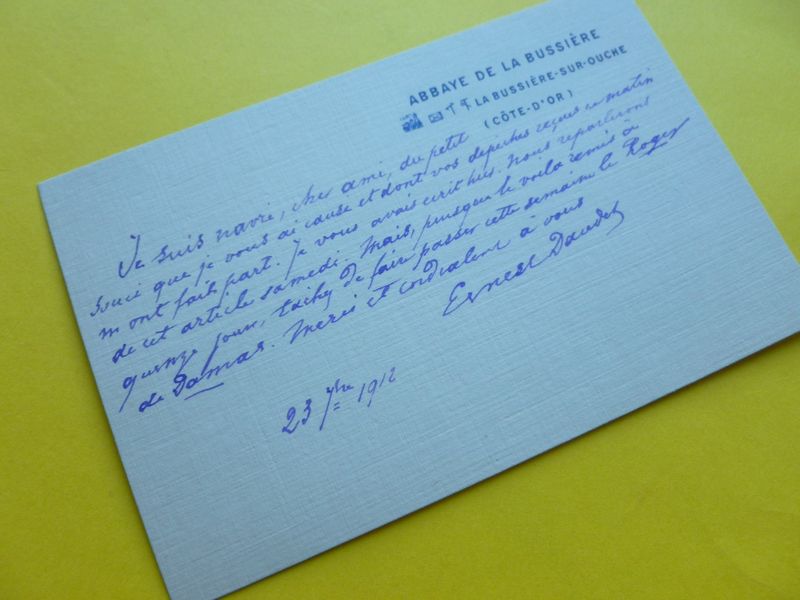 ABBAYE DE LA BUSSIÈRE
LA BUSSIÈRE-SUR-OUCHE
(CÔTE-D'OR)
Je suis navré, cher ami, du petit
souci que je vous ai cause et dont vos depeches reçues ce matin
m'ont fait part. Je vous avais ecrit hier. Nous reparlerons
de cet article samedi. Mais, puisque le voila remis à
quinze jours, tachez de faire passer cette semaine le Roger
de Damas. Merci et cordialement à vous
Ernest Daudet
23 7bre 1912